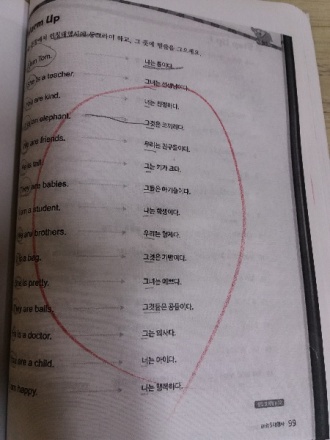 Warm Up
하고, 그 뜻에 밑줄을 그으세요.
am Tom. 나는 톰이다.
is a teacher. 그녀는 선생님이다.
are kind. 너는 친절하다.
an elephant. 그것은 코끼리다.
are friends. 우리는 친구들이다.
is tall. 그는 키가 크다.
They are babies. 그들은 아기들이다.
I am a student. 나는 학생이다.
We are brothers. 우리는 형제다.
is a bag. 그것은 가방이다.
is pretty. 그녀는 예쁘다.
They are balls. 그것들은 공들이다.
is a doctor. 그는 의사다.
are a child. 너는 아이다.
am happy. 나는 행복하다.
99